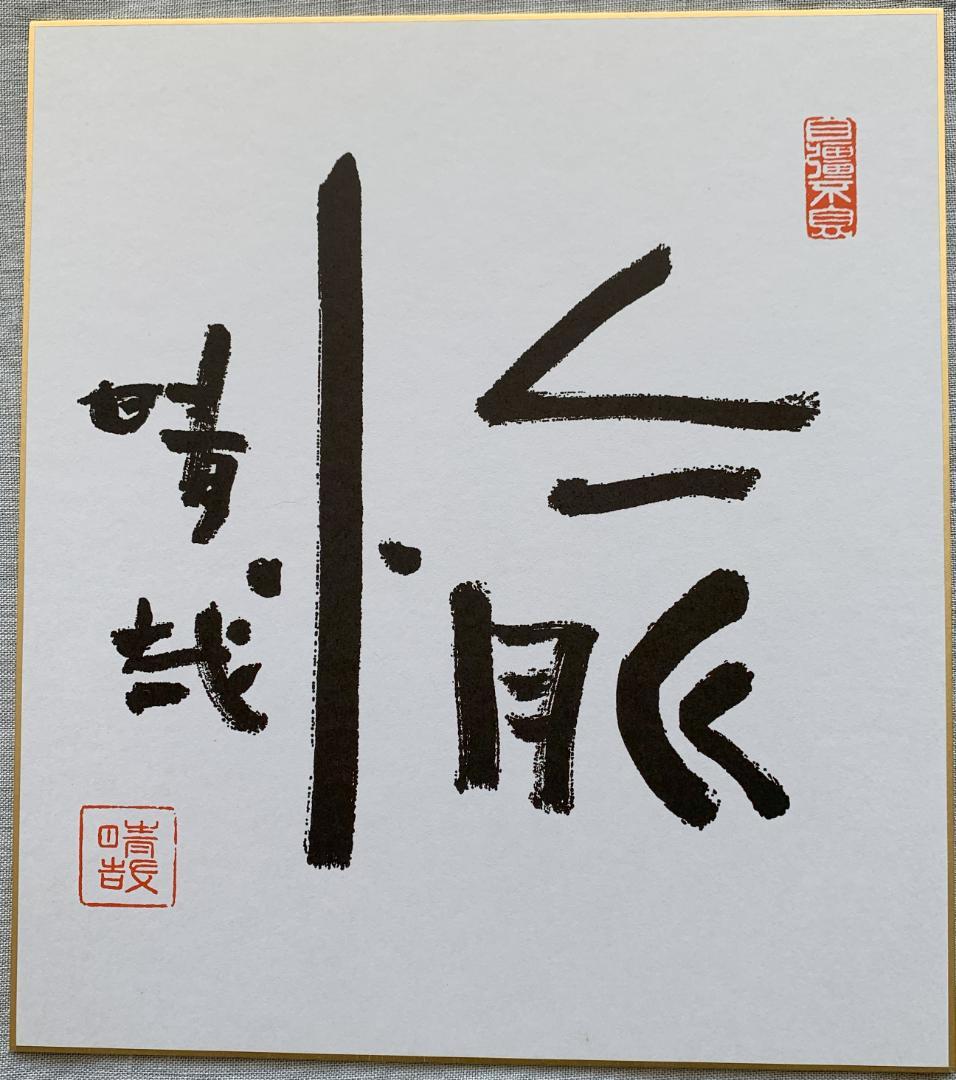 自彊不息
愉
晴哉
晴哉